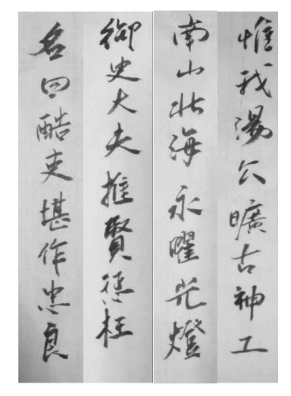 惟我湯公曠古神工
南山北海永曜光燈
御史大夫推賢懲枉
名曰酷吏堪作忠良